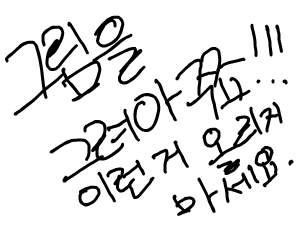 그림을
그려야죠!!!...
이런거 올리지
마세요.